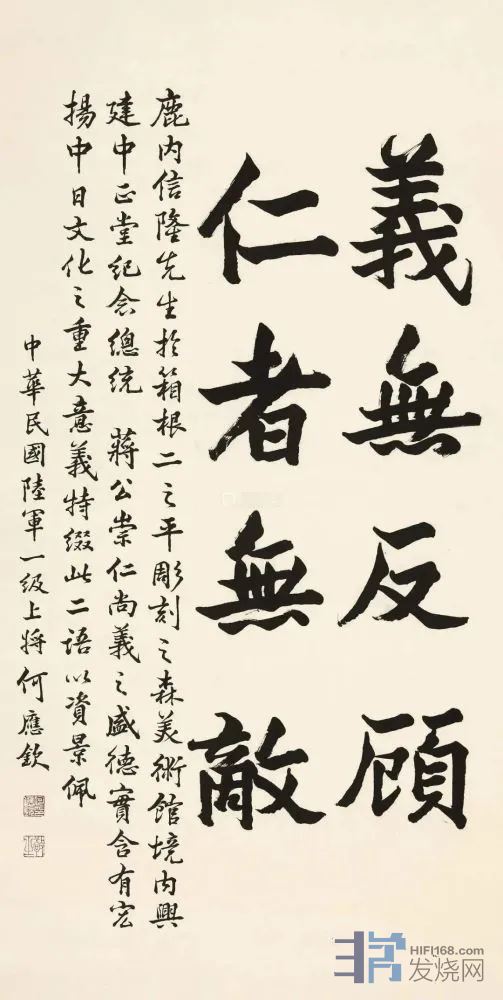 義無反顧
仁者無敵
鹿内信隆先生於箱根二之平彫刻之森美術館境内興
建中正堂紀念總統 蔣公崇仁尚義之盛德實含有宏
揚中日文化之重大意義特綴此二語以資景佩
中華民國陸軍一级上將何應欽
HIFI168.com
发烧网